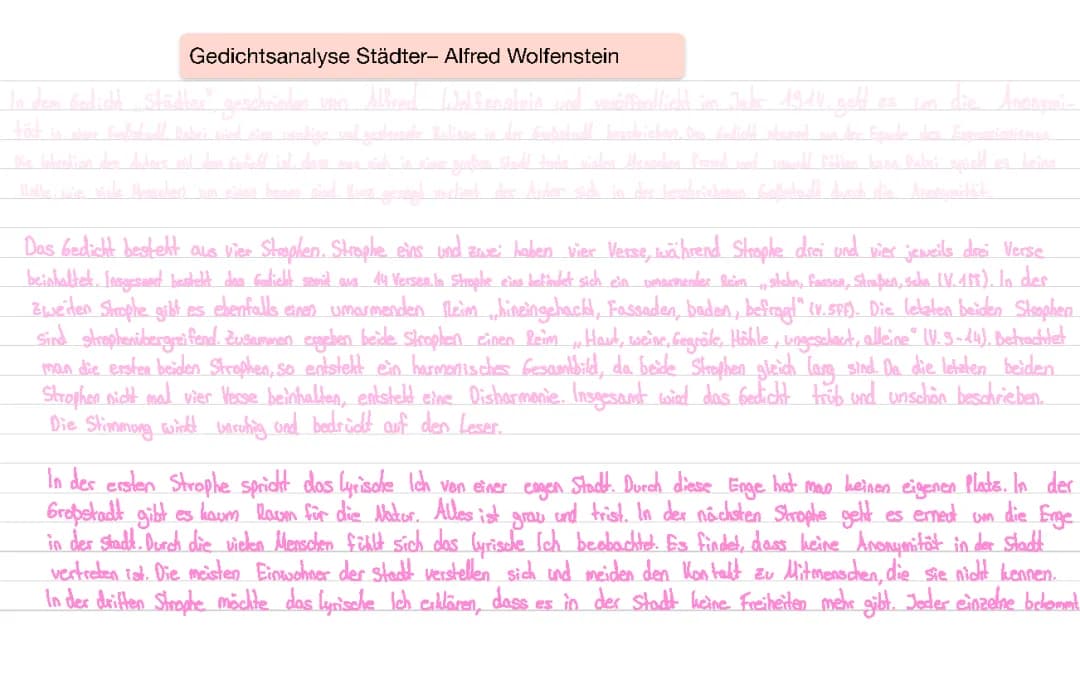 Gedichtsanalyse Städter– Alfred Wolfenstein
In dem Gedicht „Städter", geschrieben von Alfred Wolfenstein und veröffentlicht im Jahr 1914, geht es um die Anonymi-
tät in einer Großstadt. Dabei wird eine und in der Großstadt beschrieben. Das Gedicht stammt aus der Epoche des Expressionismus.
Die Intention des Autors mit dem ist, dass man sich in einer großen Stadt trotz vielen Menschen fremd und fühlen kann. Dabei spielt es keine
Rolle, wie viele Menschen um einen herum sind. Kurz gesagt verliert der Autor sich in der beschriebenen Großstadt durch die Anonymität.
Das Gedicht besteht aus vier Strophen. Strophe eins und zwei haben vier Verse, während Strophe drei und vier jeweils drei Verse
beinhaltet. Insgesamt besteht das Gedicht somit aus 14 Versen. In Strophe eins befindet sich ein umarmender Reim „stehn, fassen, Straßen, sehn (V. 1ff). In der
zweiten Strophe gibt es ebenfalls einen umarmenden Reim „hineingehackt, Fassaden, baden, befragt" (V. 5ff). Die letzten beiden Strophen
sind strophenübergreifend. Zusammen ergeben beide Strophen einen Reim „Haut, weine, Gegröle, Höhle, ungeschaut, alleine" (V. 9-14). Betrachtet
man die ersten beiden Strophen, so entsteht ein harmonisches Gesamtbild, da beide Strophen gleich lang sind. Da die letzten beiden
Strophen nicht mal vier Verse beinhalten, entsteht eine Disharmonie. Insgesamt wird das Gedicht trüb und unschön beschrieben.
Die Stimmung wirkt unruhig und bedrückt auf den Leser.
In der ersten Strophe spricht das lyrische Ich von einer engen Stadt. Durch diese Enge hat man keinen eigenen Platz. In der
Großstadt gibt es kaum Raum für die Natur. Alles ist grau und trist. In der nächsten Strophe geht es erneut um die Enge
in der Stadt. Durch die vielen Menschen fühlt sich das lyrische Ich beobachtet. Es findet, dass keine Anonymität in der Stadt
vertreten ist. Die meisten Einwohner der Stadt verstellen sich und meiden den Kontakt zu Mitmenschen, die sie nicht kennen.
In der dritten Strophe möchte das lyrische Ich erklären, dass es in der Stadt keine Freiheiten mehr gibt. Jeder einzelne bekommt